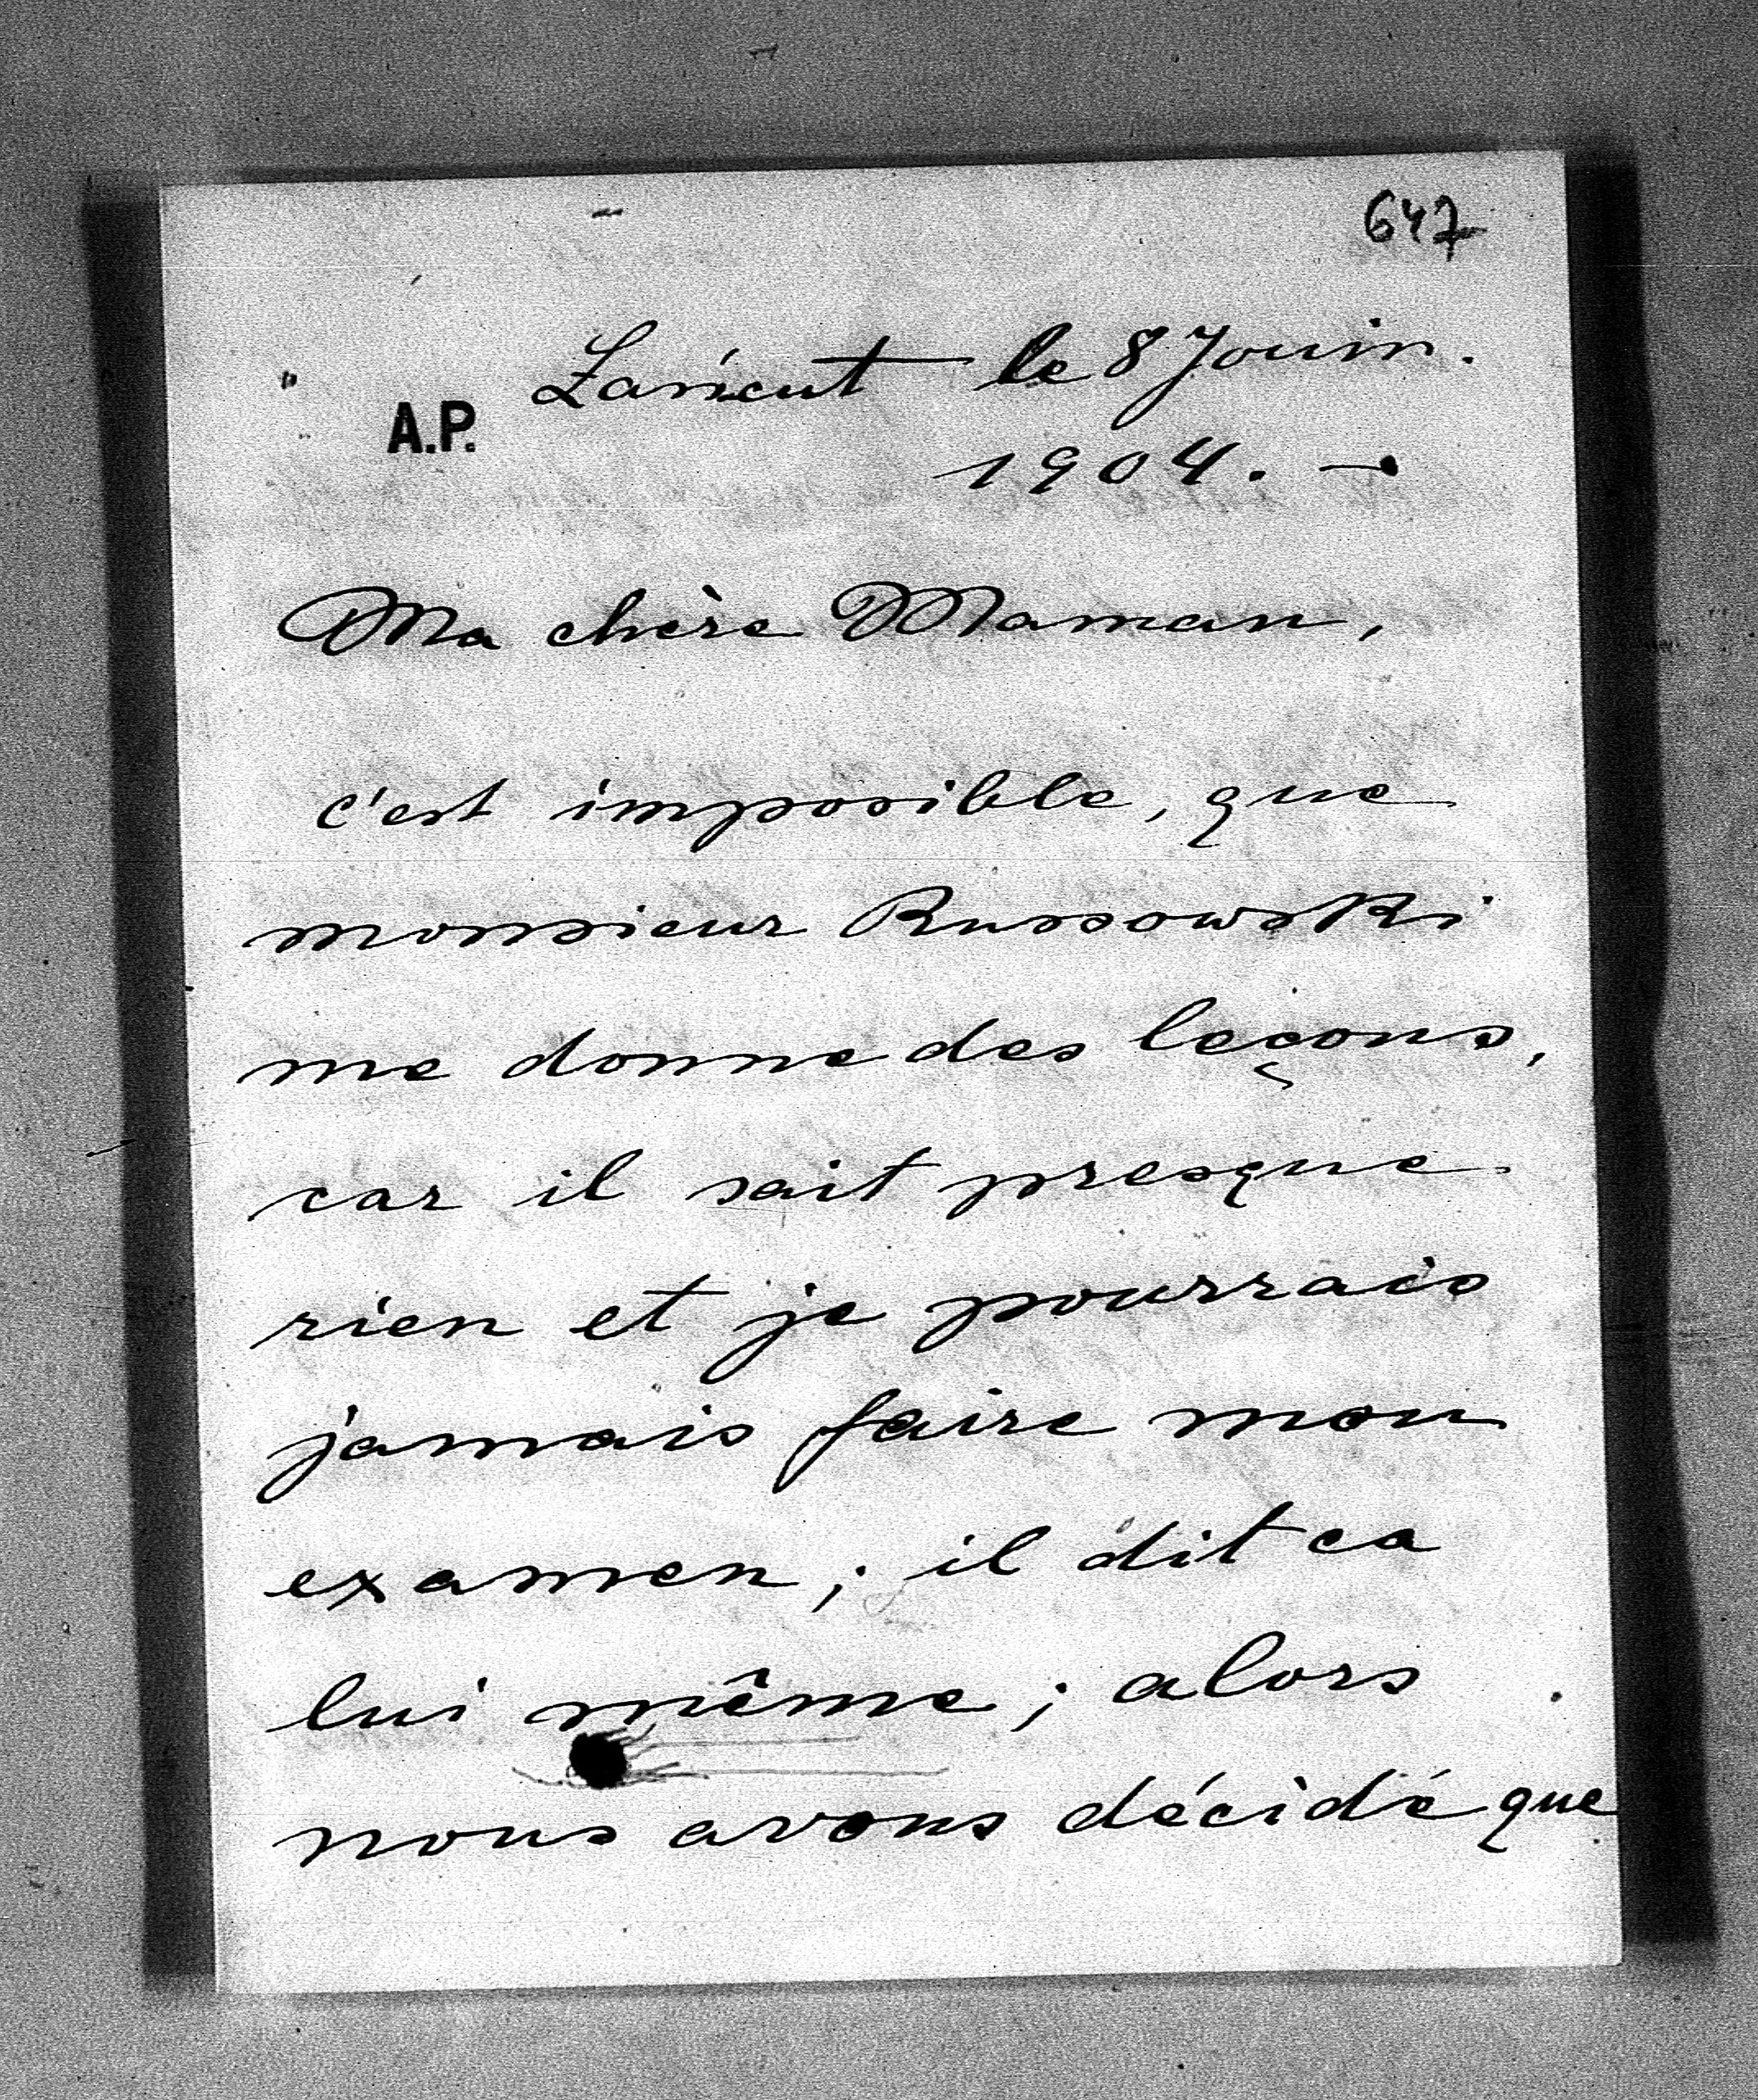 647
Łańcut le 8 Jouin.
A.P.
1904. —
Ma chère Maman,
c'est imposible, que
monsieur Russowski
me donne des leçons,
car il sait presque
rien et je pourrais
jamais faire mon
examen; il dit ca
lui même; alors
nous avons décidé que